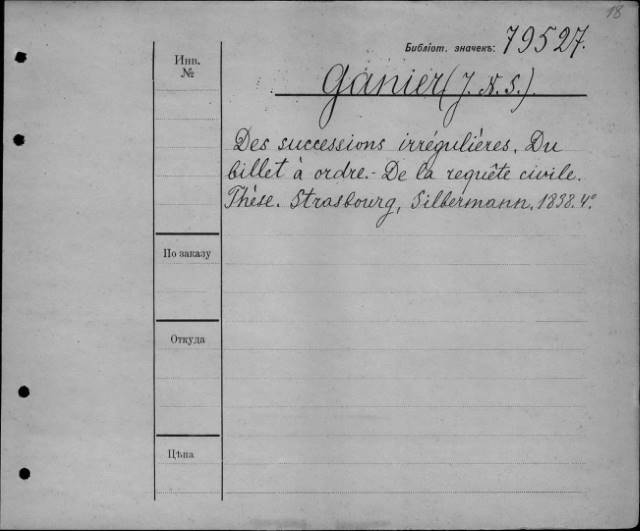 18
Библіот. значекъ: 79527.
Инв.
№
Ganier (J. N. S.)
Des successions irrégulières. Du
billet à ordre. - De la requête civile.
Thèse. Strasbourg, Silbermann. 1838. 4º
По заказу
Откуда
Цѣна